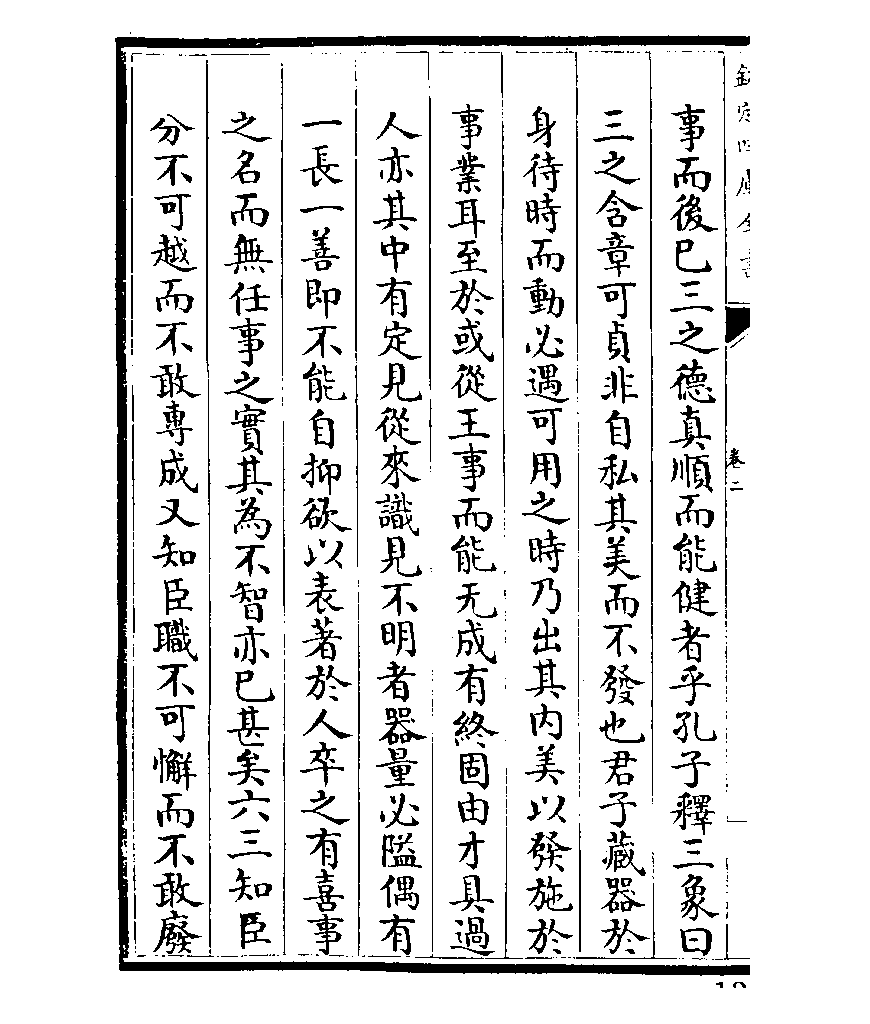 欽定四庫全書
卷二
事而後已三之德真順而能健者乎孔子釋三象曰
三之含章可貞非自私其美而不發也君子藏器於
身待時而動必遇可用之時乃出其内美以發施於
事業耳至於或從王事而能无成有終固由才具過
人亦其中有定見從來識見不明者器量必隘偶有
一長一善即不能自抑欲以表著於人卒之有喜事
之名而無任事之實其為不智亦已甚矣六三知臣
分不可越而不敢專成又知臣職不可懈而不敢廢